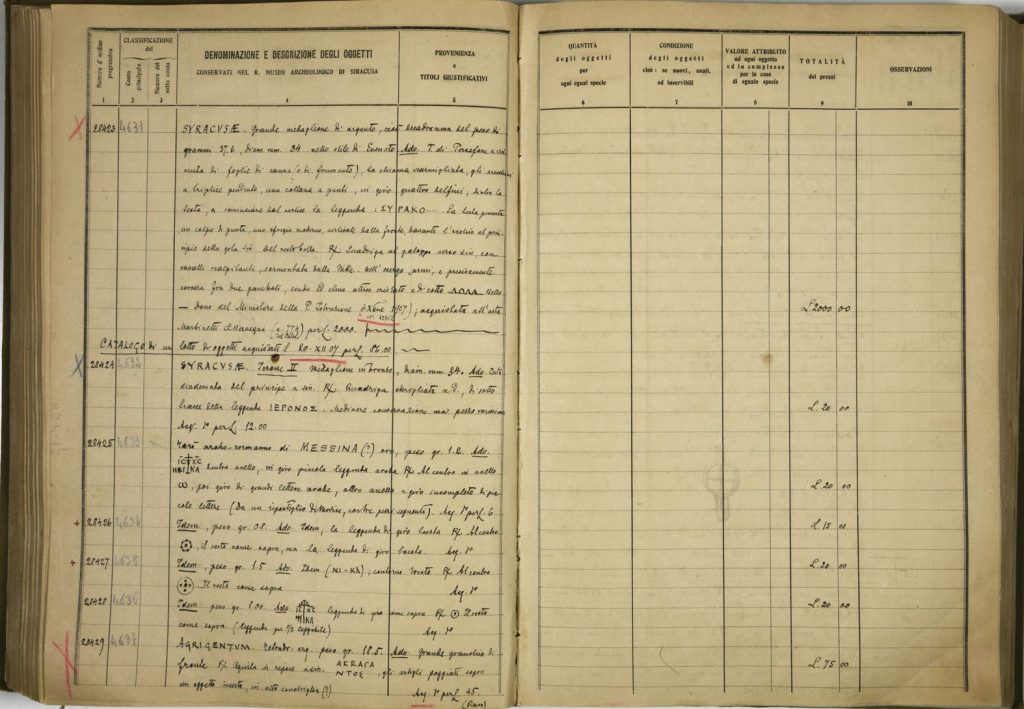 Numero d'ordine progressivo
CLASSIFICAZIONE
del
Conto principale
Numero del sotto conto
DENOMINAZIONE E DESCRIZIONE DEGLI OGGETTI
CONSERVATI NEL R. MUSEO ARCHEOLOGICO DI SIRACUSA
PROVENIENZA
e
TITOLI GIUSTIFICATIVI
QUANTITÀ
degli oggetti
per
ogni egual specie
CONDIZIONE
degli oggetti
cioè: se nuovi, usati,
od inservibili
VALORE ATTRIBUITO
ad ogni oggetto
ed in complesso
per le cose
di eguale specie
TOTALITÀ
dei prezzi
OSSERVAZIONI
1 2 3 4 5 6 7 8 9 10
28423 4631 SYRACVSÆ. Grande medaglione di argento, cioè decadramma del peso di
grammi 37.6, diam. mm. 34 nello stile di Eveneto. Ado. T. di Persefone a sin.
cinta di foglie di canna (o di frumento), la chioma scarmigliata, gli orecchini
a triplice pendente, una collana a punti, in giro quattro delfini, dietro la
testa, a cominciare dal vertice la leggenda: ΣΥΡΑΚΟ..... La testa presenta
un colpo di punta, uno sfregio moderno, verticale dalla fronte, davanti l'occhio al prin-
cipio della gola sin. Del resto bello. Rx Quadriga al galoppo verso sin., con
cavalli scalpitanti, sormontata dalla Nike. Nell'esergo armi, e precisamente
corazza fra due gambali, scudo ed elmo attico cristato e di sotto ΑΘΛΑ. Bello
— Dono del Ministero della P. Istruzione; acquistata all'asta
Martinetti (n. 779) per L. 2000. L. 2000 00
CATALOGO di un lotto di oggetti acquistati il 20-XII-07 per L. 86.00
28424 4632 SYRACVSÆ. Ierone II Medaglione in bronzo, diam. mm. 34. Ado. Testa
diademata del principe a sin. Rx Quadriga a D., di sotto
tracce della leggenda ΙΕΡΟΝΟΣ. Mediocre conservazione ma pezzo rarissimo L. 20 00
Acq. Iº per L. 12.00
28425 4633 Tarì arabo-normanno di MESSINA (?) oro, peso gr. 1.2. Ado.
IC XC
NI KA dentro anello, in giro piccola leggenda araba Rx Al centro in anello
ω, poi giro di grandi lettere arabe, altro anello e giro incompleto di pic- L. 20 00
cole lettere (Da un ripostiglio, coi tre pezzi seguenti). Acq. Iº per L. 6
28426 4634 Idem, peso gr. 0.8. Ado. Idem, la leggenda di giro tosata Rx Al centro L. 15 00
, il resto come sopra, ma la leggenda di giro tosata. Acq. Iº
28427 4635 Idem, peso gr. 1.5 Ado. Idem (NI-KA); contorno tosato Rx Al centro L. 20 00
Il resto come sopra Acq. Iº
28428 4636 Idem peso gr. 1.00. Ado. IC XC NI KA leggenda di giro come sopra Rx Il resto L. 20 00
come sopra. (leggenda per 2/3 leggibile) Acq. Iº
28429 4637 AGRIGENTVM. Tetradr. arg. peso gr. 18.5. Ado. Grande granchio di
fronte Rx Aquila in riposo a sin. ΑΚΡΑΓΑ ΝΤΟΣ, gli artigli poggiati sopra L. 75 00
un oggetto incerto, in alto (?) Acq. Iº per L. 45.